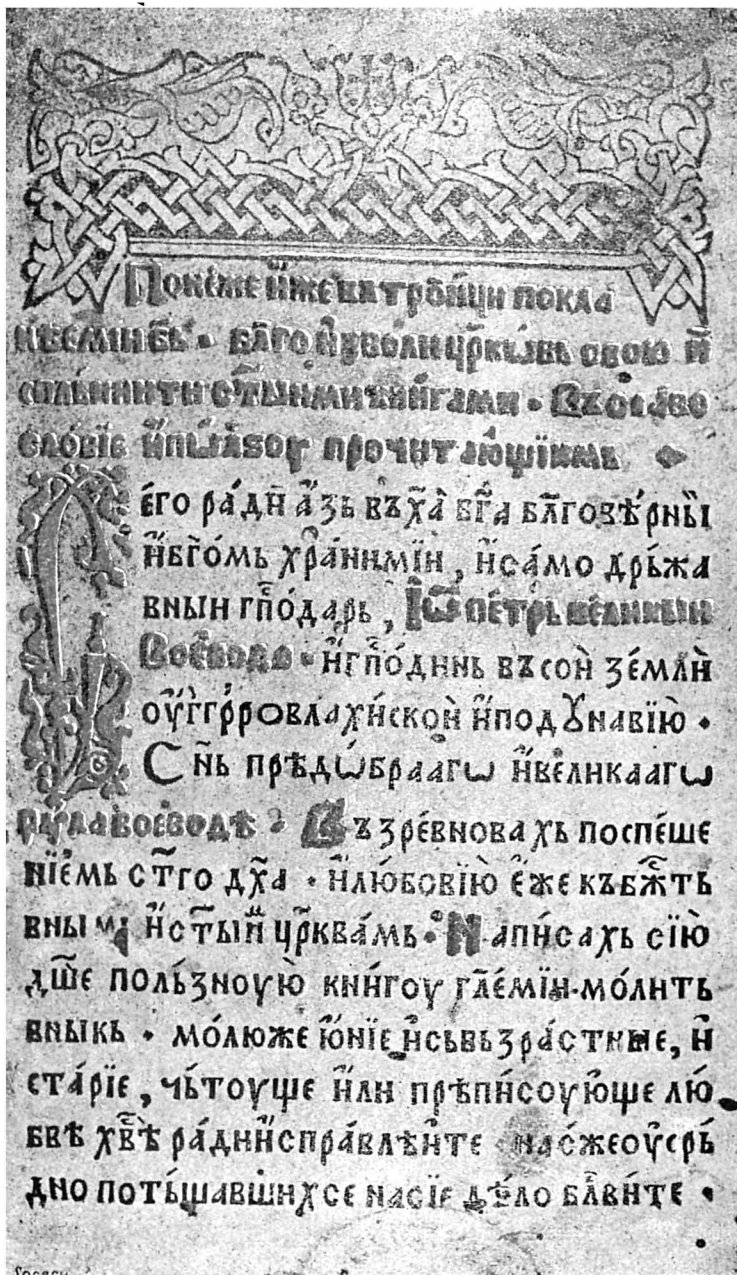 Понеже и҆же въ трⷪ҇и́ци покла
нѣе́мїи бъ҃ · бл҃гои҆зволи цр҃ковь свою и҆
сꙿплънити ст҃ы́ими кни́гами · Въ славо
сло́вїе и҆ по́лꙁоу прочита́ющїимь
Сего ра́ди а҆́зь въ х҃а̀ бг҃а бл҃говѣ́рныи
и҆ бг҃о́мь хра́нимїи , и҆ са́мо дръ́жа
вныи гпⷭ҇о́дарь , Іѡ҃ пе́трь вели́кыи
Воево́да · и҆ гпⷭ҇о́динь въсо́и зе́мли
оу҆́ггрровлахи́искои и҆ подꙋнавїю ·
Сн҃ь прѣдѡ́браагѡ и҆ вели́каагѡ
радула воево́дѣ · Въ зре́вновахь поспе́ше
нїемь ст҃го дх҃а · и҆ лю́бовїю є҆́же къ бжⷭ҇ть
вныма и҆ ст҃ы́и цр҃ква́мь · Написахь сїю̀
дш҃е поль́зноую̀ кни́гоу гл҃е́мїи · мо́лить
вныкь · мо́люже ю҆́нїе и҆ сьвьзра́стные , и҆
ста́рїе , чьто́уще и҆ли прѣпи́соую҆ще лю́
бве хв҃ѣ ра́ди и҆справлѣ́ите · на́сже оу҆сръ́
дно поть́щавшихсе на сїе дѣ́ло бл҃ви́те ·